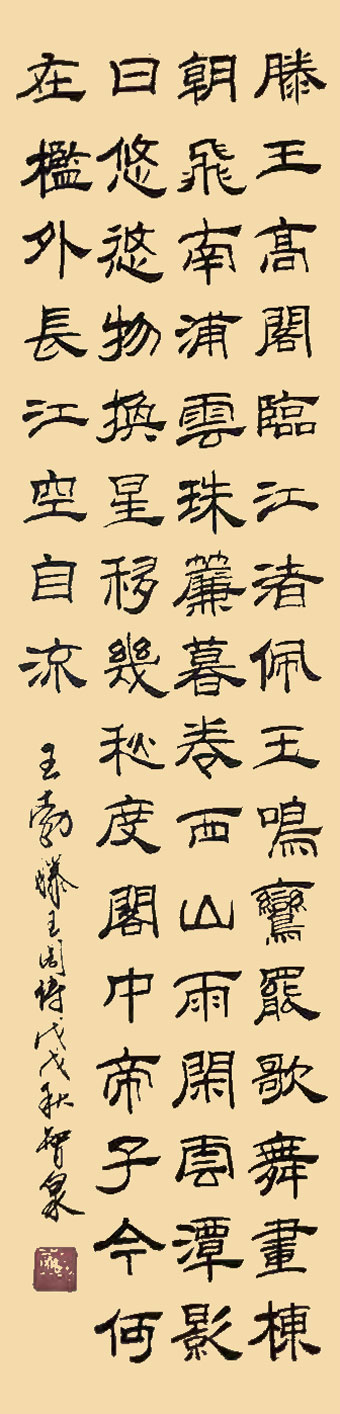 滕王高閣臨江渚佩玉鳴鸞罷歌舞畫棟
朝飛南浦雲珠簾暮卷西山雨閑雲潭影
日悠悠物換星移幾秋度閣中帝子今何
在檻外長江空自流
王勃滕王阁诗戊戌秋智泉